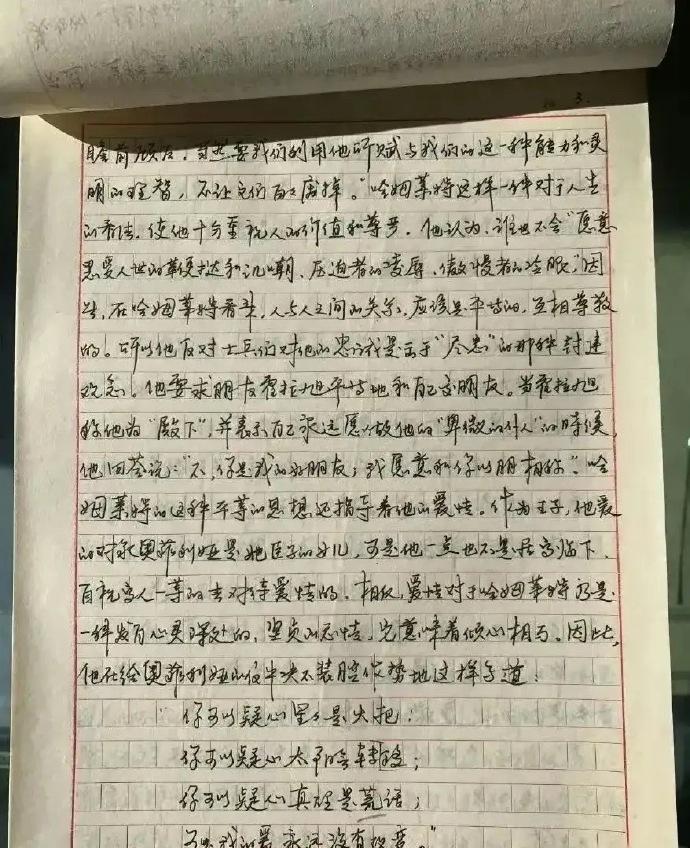 3.
瞻前顾后,当然要我们利用他所赋与我们的这一种能力和灵
明的理智,不让它们白白废掉。"哈姆莱特这样一种对于人生
的看法,使他十分重视人的价值和尊严。他认为,谁也不会"愿意
忍受人世的鞭挞和讥嘲、压迫者的凌辱、傲慢者的冷眼"因
此,在哈姆莱特看来,人与人之间的关系,应该是平等的,互相尊敬
的。所以他反对士兵们对他的忠诚是出于"尽忠"的那种封建
观念。他要求朋友霍拉旭平等地和自己交朋友。当霍拉旭
称他为"殿下",并表示自己永远愿以做他的"卑微的仆人"的时候,
他回答说:"不,你是我的好朋友;我愿意和你以朋相称"。哈
姆莱特的这种平等的思想还指导着他的爱情。作为王子,他爱
的对象奥菲利娅是他臣子的女儿,可是他一点也不是居高临下、
自视高人一等的去对待爱情的。相反,爱情对于哈姆莱特乃是
一种发自心灵深处的,坚贞的感情,它意味着倾心相与。因此,
他在给奥菲利娅的信中决不装腔作势地这样写道:
"你可以疑心星星是火把;
你可以疑心太阳会转移;
你可以疑心真理是谎话;
可是我的爱永远没有改变。"